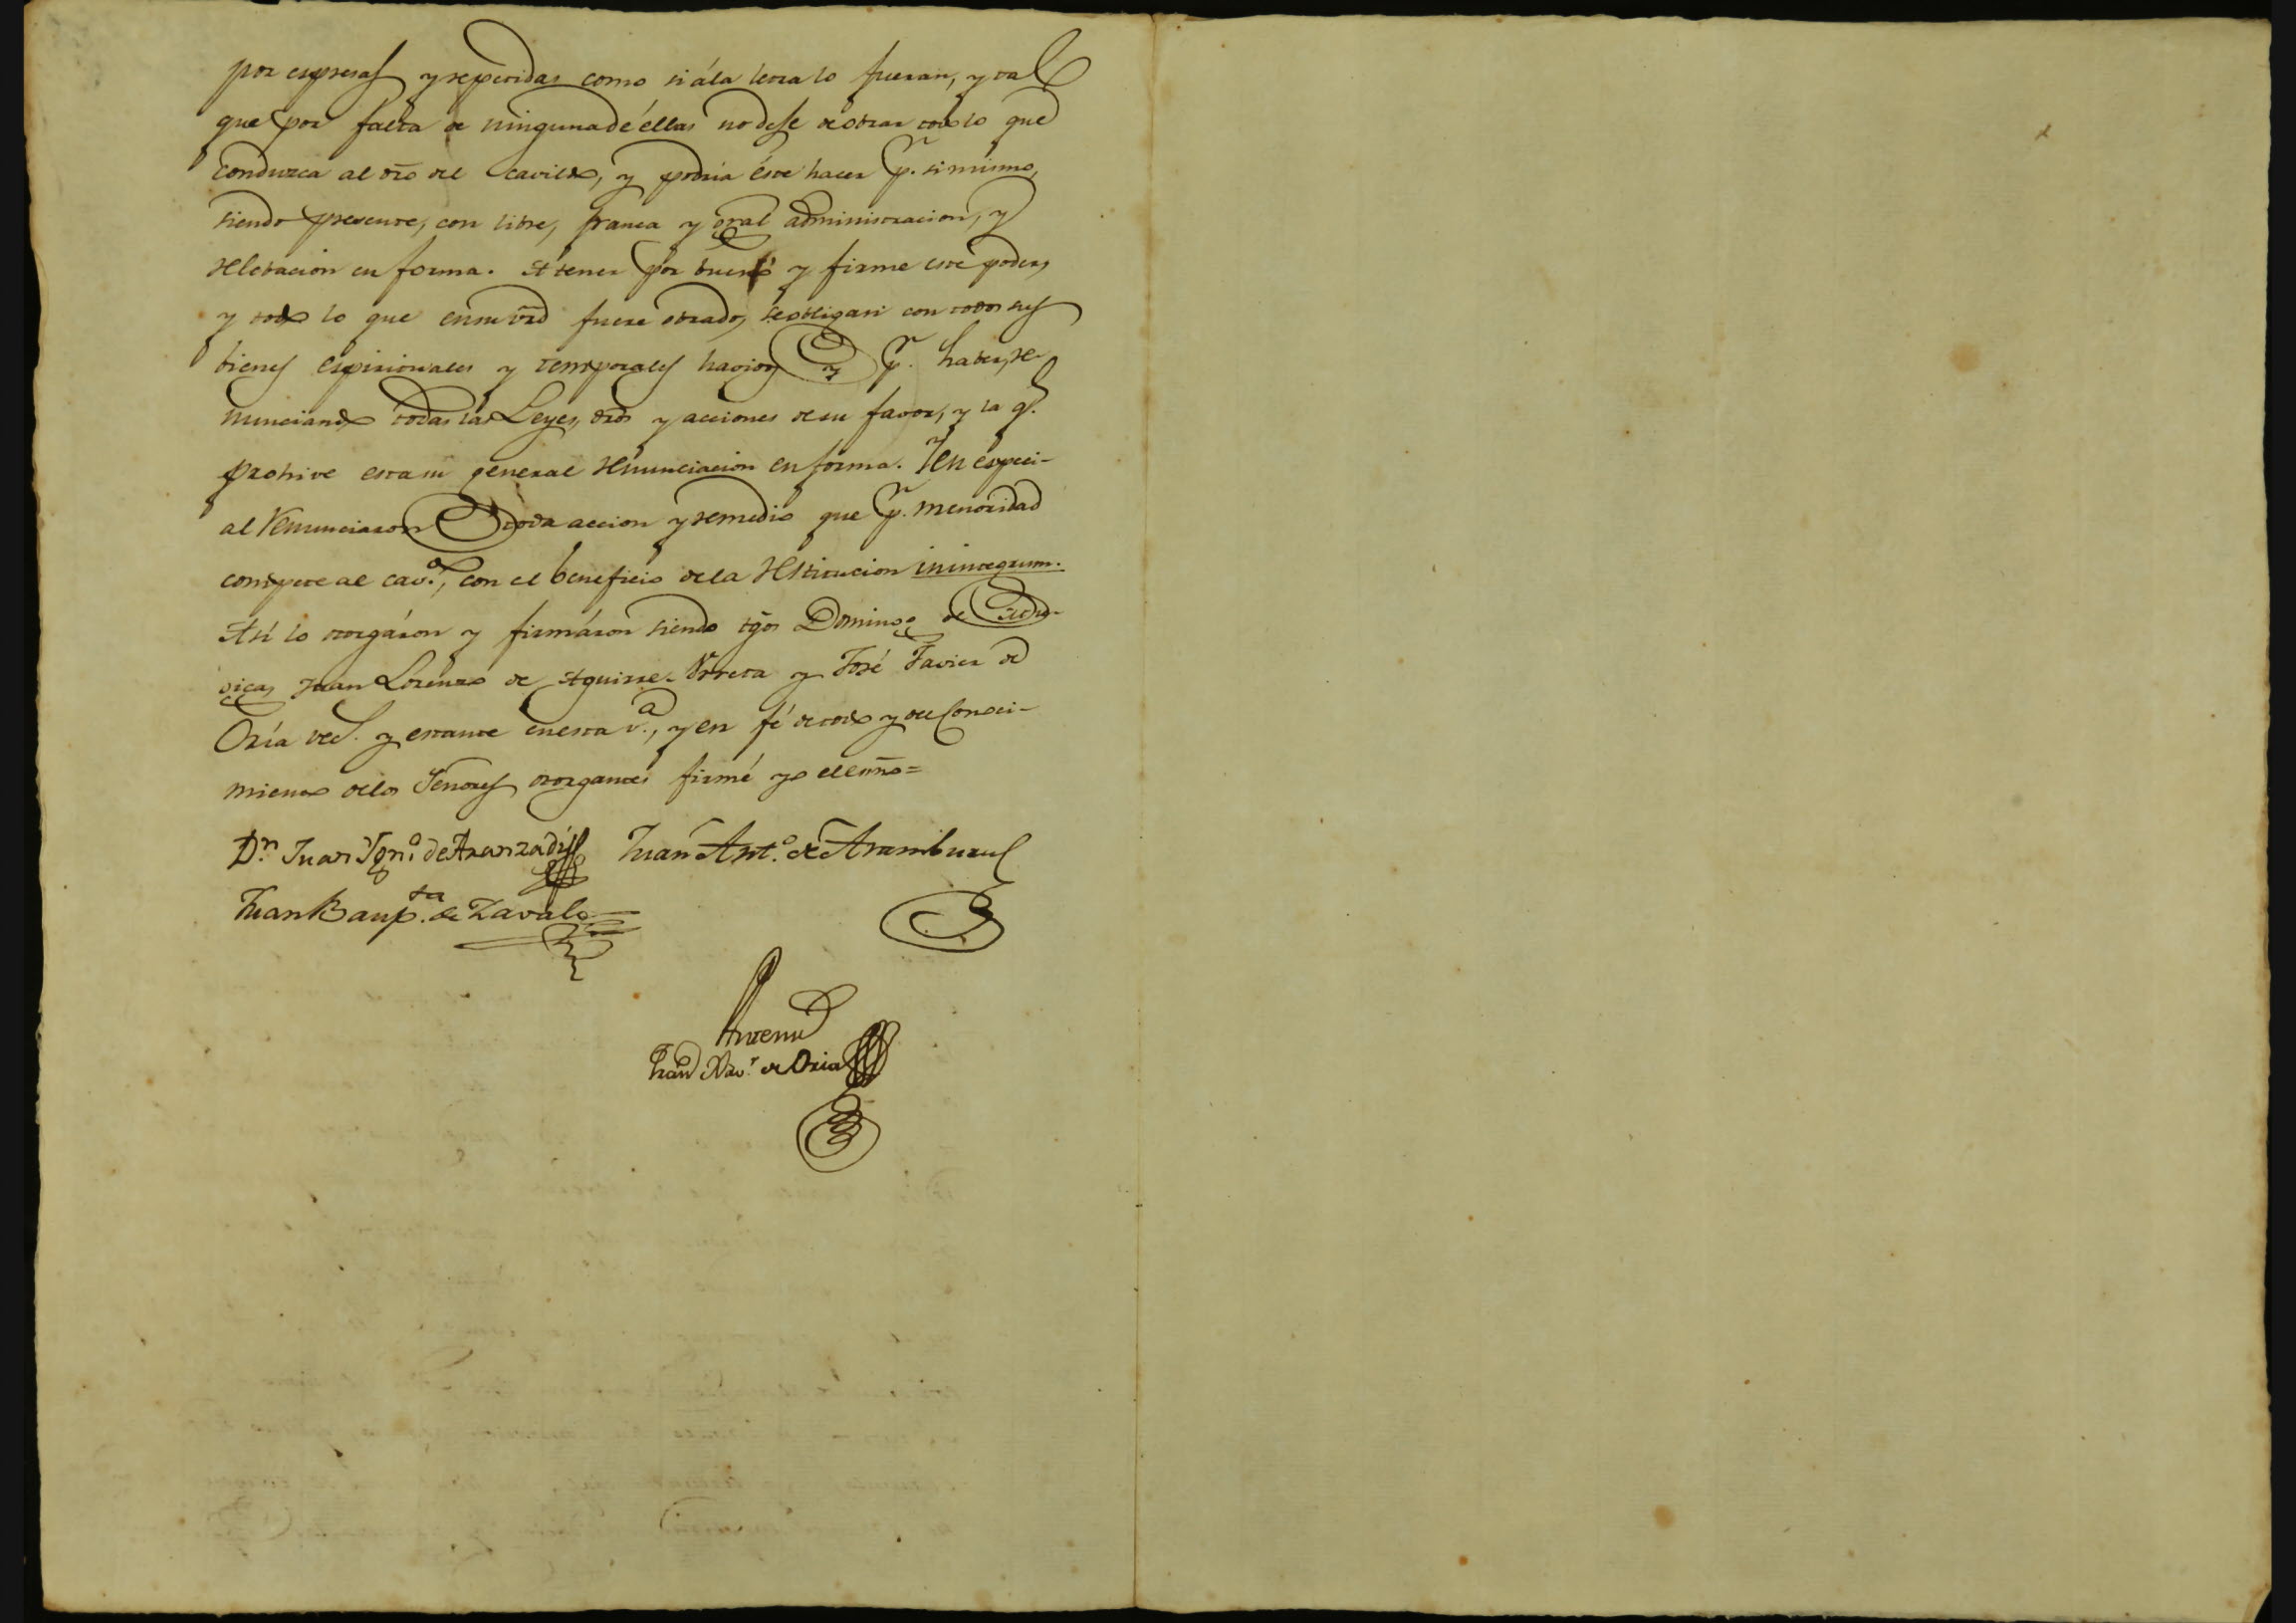 por espresas y repetidas como si á la letra lo fueran, y tal
que por falta de ninguna de éllas no dese de obrar todo lo que
conduzca al dro del Cavildo, y podria éste hacer pr. si mismo,
siendo presente, con libre, franca y gral administracion, y
relebacion en forma. A tener por bueno y firme este poder,
y todo lo que en su vrd fuere obrado, se obligan con todos sus
bienes espirituales y temporales havidos y pr. haber, re-
nunciando todas las Leyes, dros y acciones de su favor, y la ql.
prohive esta su general renunciacion en forma. Y en especi-
al renunciaron toda accion y remedio que pr. menoridad
compete al cavdo., con el beneficio de la restitucion in integrum.
Asi lo otorgáron y firmáron siendo tgos Domingo de
Juan Lorenzo de Aguirre-Urreta y José Javier de
Oria vecs. y estante en esta va., y en fé de todo y del conoci-
miento de los Señores otorgantes firmé yo el esno=
Dn Juan Igno. de Aranzadi Juan Anto. de Aramburu
Juan Baupta. de Zavala
Ante mi
Xavr. de Oria